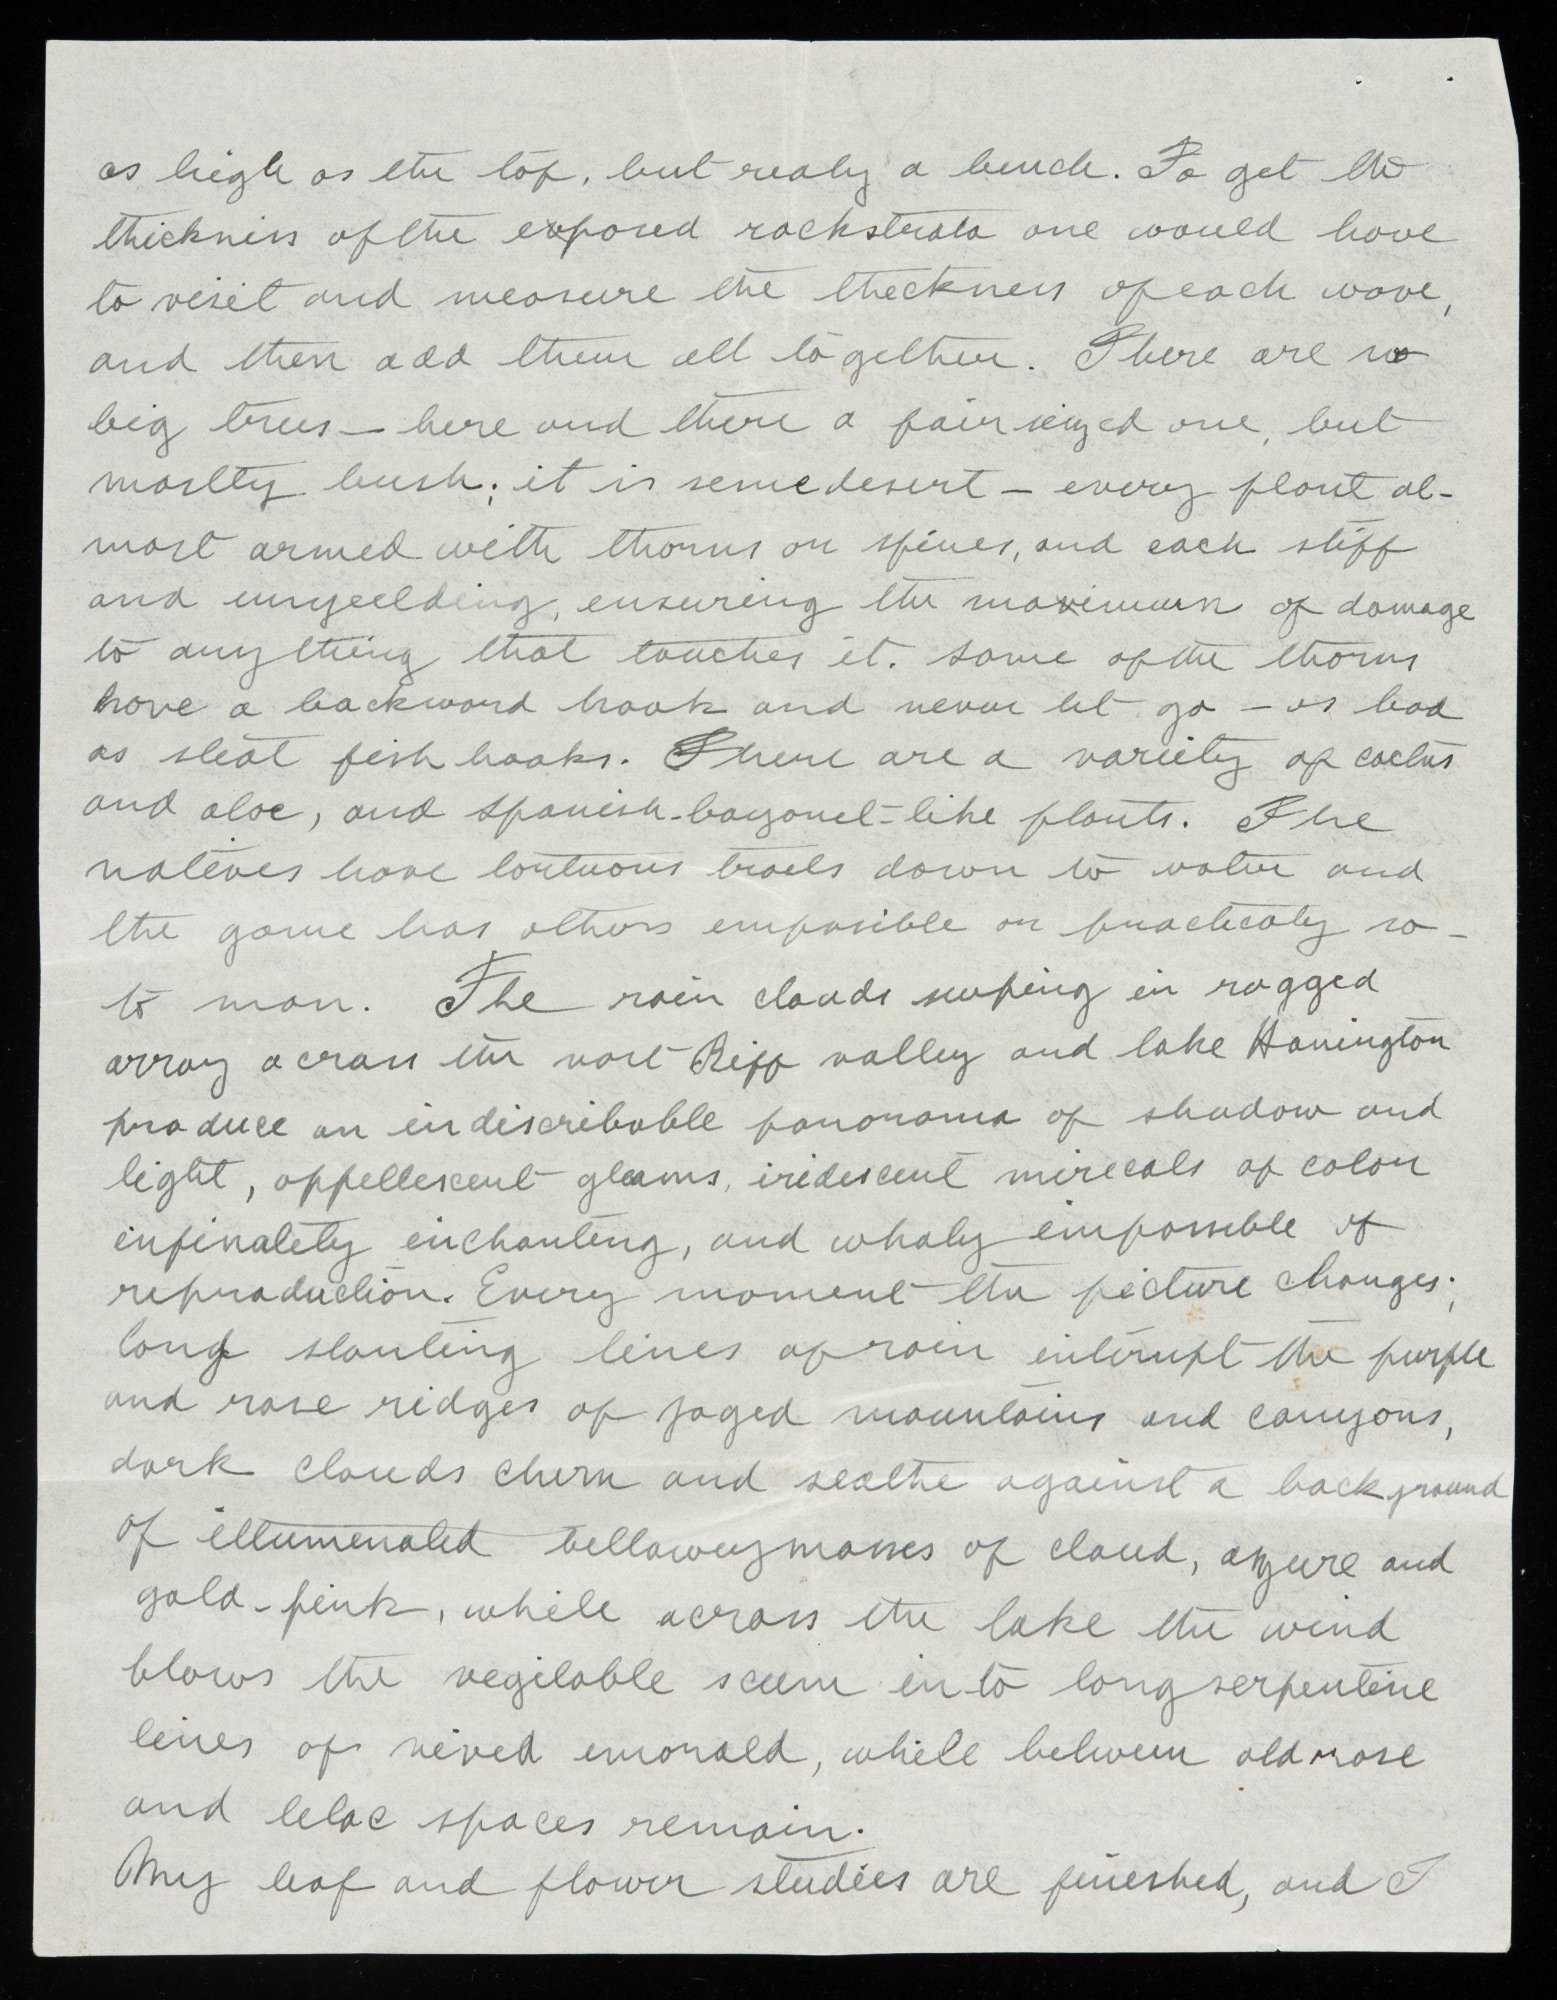 as high as the top, but realy a bench. To get the
thickniss of the exposed rockstrata one would have
to visit and measure the thickness of each wave,
and then add them all together. There are no
big trees — here and there a fair sized one, but
mostly bush; it is semedesert — every plant al-
most armed with thorns or spines, and each stiff
and unyeelding, ensuring the maximum of damage
to anything that touches it. Some of the thorns
have a backward hook and never let go — as bad
as steal fish hooks. There are a variety of cactus
and aloe, and Spanish-bayonet-like plants. The
natives have tortuous trails down to water and
the game has others imposible or practicaly so —
to man. The rain clouds sweping in ragged
array across the vast Riff valley and lake Hanington
produce an indiscribable panorama of shadow and
light, oppellescent gleams, iridescent mirecals of color
infinately enchanting, and wholy impossible of
reproduction. Every moment the picture changes;
long slanting lines of rain interupt the purple
and rose ridges of jaged mountains and canyons,
dark clouds churn and seathe against a background
of illumenated bellowey masses of cloud, azure and
gold-pink, while across the lake the wind
blows the vegitable scum into long serpentine
lines of vived emorald, while between old rose
and lelac spaces remain.
My leaf and flower studies are fineshed, and I